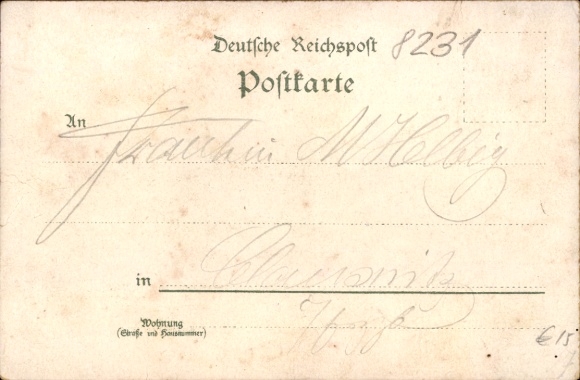 Deutsche Reichspost 8231
Postkarte
An
Fräulein M Helbig
in
Wohnung
(Straße und Hausnummer)
€ 15